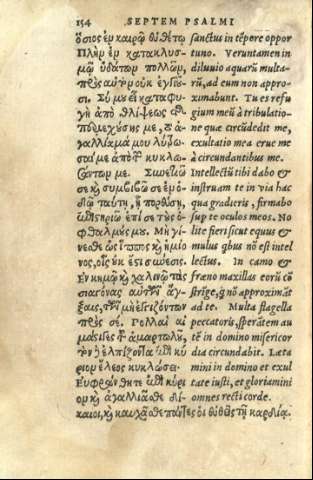 154 SEPTEM PSALMI
ὅσιος ἐν καιρῷ εὐθέτῳ
Πλὴν ἐν κατακλυσ-
μῷ ὑδάτων πολλῶν,
πρὸς αὐτὸν οὐκ ἐγγιοῦ
σι. Σύ μου εἶ καταφυ
γὴ ἀπὸ θλίψεως τῆς
περιεχούσης με, τὸ ἀ
γαλλίαμά μου λύτρω
σαί με ἀπὸ τῶν κυκλω
σάντων με. Συνετιῶ
σε καὶ συμβιβῶ σε ἐν ὁ-
δῷ ταύτῃ, ᾗ πορεύσῃ,
ἐπιστηριῶ ἐπί σε τοὺς ὀ-
φθαλμούς μου. Μὴ γί
νεσθε ὡς ἵππος καὶ ἡμίο
νος, οἷς οὐκ ἔστι σύνεσις.
Ἐν κημῷ καὶ χαλινῷ τὰς
σιαγόνας αὐτῶν ἄγ-
ξαις, τῶν μὴ ἐγγιζόντων
πρὸς σέ. Πολλαὶ αἱ
μάστιγες τοῦ ἁμαρτωλοῦ,
τὸν δὲ ἐλπίζοντα ἐπὶ κύ
ριον ἔλεος κυκλώσει.
Εὐφράνθητε ἐπὶ κύρι
ον καὶ ἀγαλλιᾶσθε δί-
καιοι, καὶ καυχᾶσθε πάντες οἱ εὐθεῖς τῇ καρδίᾳ.
sanctus in tēpore oppor
tuno. Veruntamen in
diluuio aquarũ multa-
rũ, ad eum non appro-
ximabunt. Tu es refu
gium meũ à tribulatio-
ne quæ circũdedit me,
exultatio mea erue me
à circundantibus me.
Intellectũ tibi dabo &
instruam te in via hac
qua gradieris, firmabo
sup te oculos meos. No
lite fieri sicut equus &
mulus qbus nõ est intel
lectus. In camo &
fræno maxillas eorũ cõ
strĩge, q nõ approximãt
ad te. Multa flagella
peccatoris, sperãtem au
tẽ in domino misericor
dia circundabit. Læta
mini in domino et exul
tate iusti, et gloriamini
omnes recti corde.